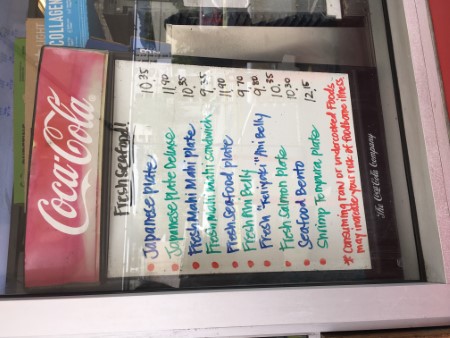 COLLAGEN
Coca-Cola
Fresh Seafood!
Japanese Plate 10.35
Japanese Plate Deluxe 11.90
Fresh Mahi Mahi Plate 10.55
Fresh Mahi Mahi Sandwich 9.35
Fresh Seafood Plate 11.90
Fresh Ahi Belly 9.70
Fresh "Teriyaki" Ahi Belly
Fresh Salmon Plate
Seafood Bento 10.30
Shrimp Tempura Plate 12.15
* Consuming raw or undercooked foods
may increase your risk of foodborne illness.
The Coca-Cola Company